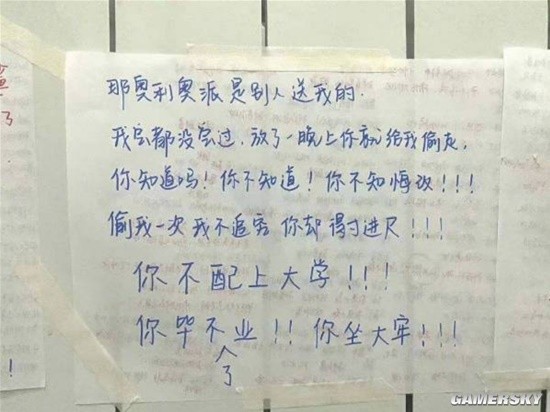 那奥利奥派是别人送我的.
我尝都没尝过,放了一晚上你就给我偷走,
你知道吗!你不知道!你不知悔改!!!
偷我一次 我不追究 你却得寸进尺!!!
你不配上大学!!!
你毕不了业!!你坐大牢!!!
了
!
GAMERSKY